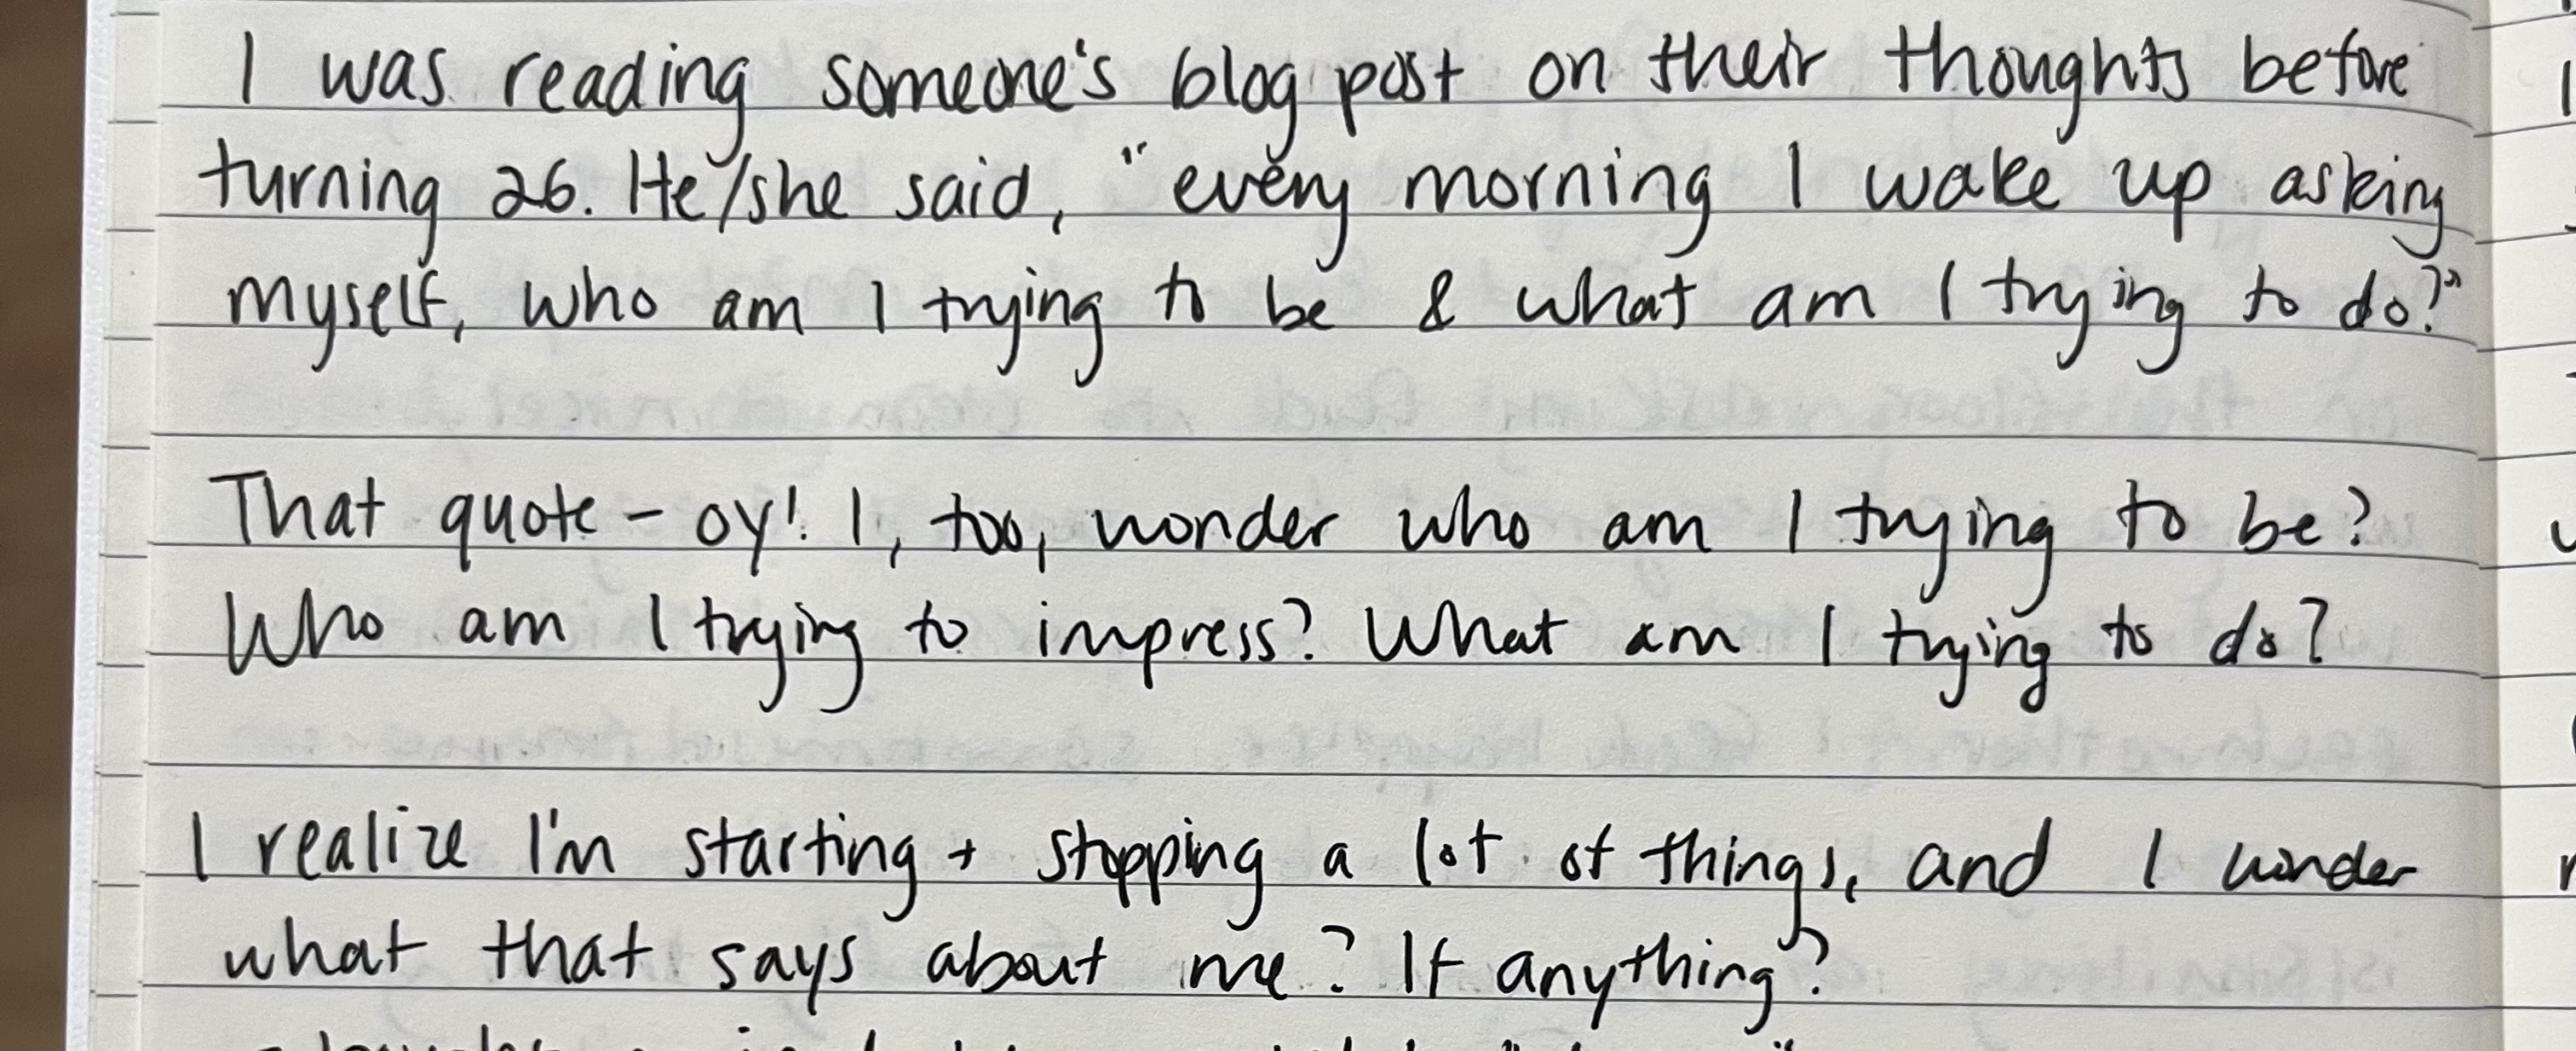 I was reading someone's blog post on their thoughts before
turning 26. He/she said, "every morning I wake up asking
myself, who am I trying to be & what am I trying to do?"
That quote - oy! I, too, wonder who am I trying to be?
Who am I trying to impress? What am I trying to do?
I realize I'm starting + stopping a lot of things, and I wonder
what that says about me? If anything?